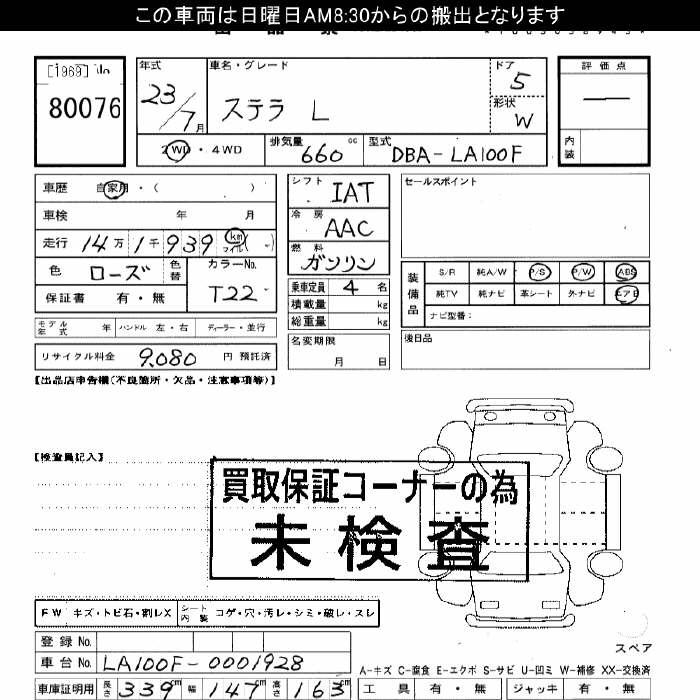 この車両は日曜日AM8:30からの搬出となります
[1969] No
80076
年式
23/7月
車名・グレード
ステラ L
ドア
5
形状
W
評価点
—
内装
2WD・4WD
排気量 660 cc
型式 DBA-LA100F
車歴 自家用・( )
車検 年 月
走行 14万1千939 (km マイル)
色 ローズ 色替
カラーNo. T22
保証書 有・無
モデル年式 年 ハンドル 左・右 ディーラー・並行
リサイクル料金 9,080 円 預託済
シフト IAT
冷房 AAC
燃料 ガソリン
乗車定員 4 名
積載量 kg
総重量 kg
名変期限
月 日
セールスポイント
装備品
S/R 純A/W P/S P/W ABS
純TV 純ナビ 革シート 外ナビ エアB
ナビ型番:
後日品
【出品店申告欄(不良箇所・欠品・注意事項等)】
【検査員記入】
買取保証コーナーの為
未検査
FW キズ・トビ石・割レX
シート内装 コゲ・穴・汚レ・シミ・破レ・スレ
登録 No.
車台 No. LA100F-0001928
車庫証明用 長さ 339cm 幅 147cm 高さ 163cm
スペア
A-キズ C-腐食 E-エクボ S-サビ U-凹ミ W-補修 XX-交換済
工具 有・無 ジャッキ 有・無